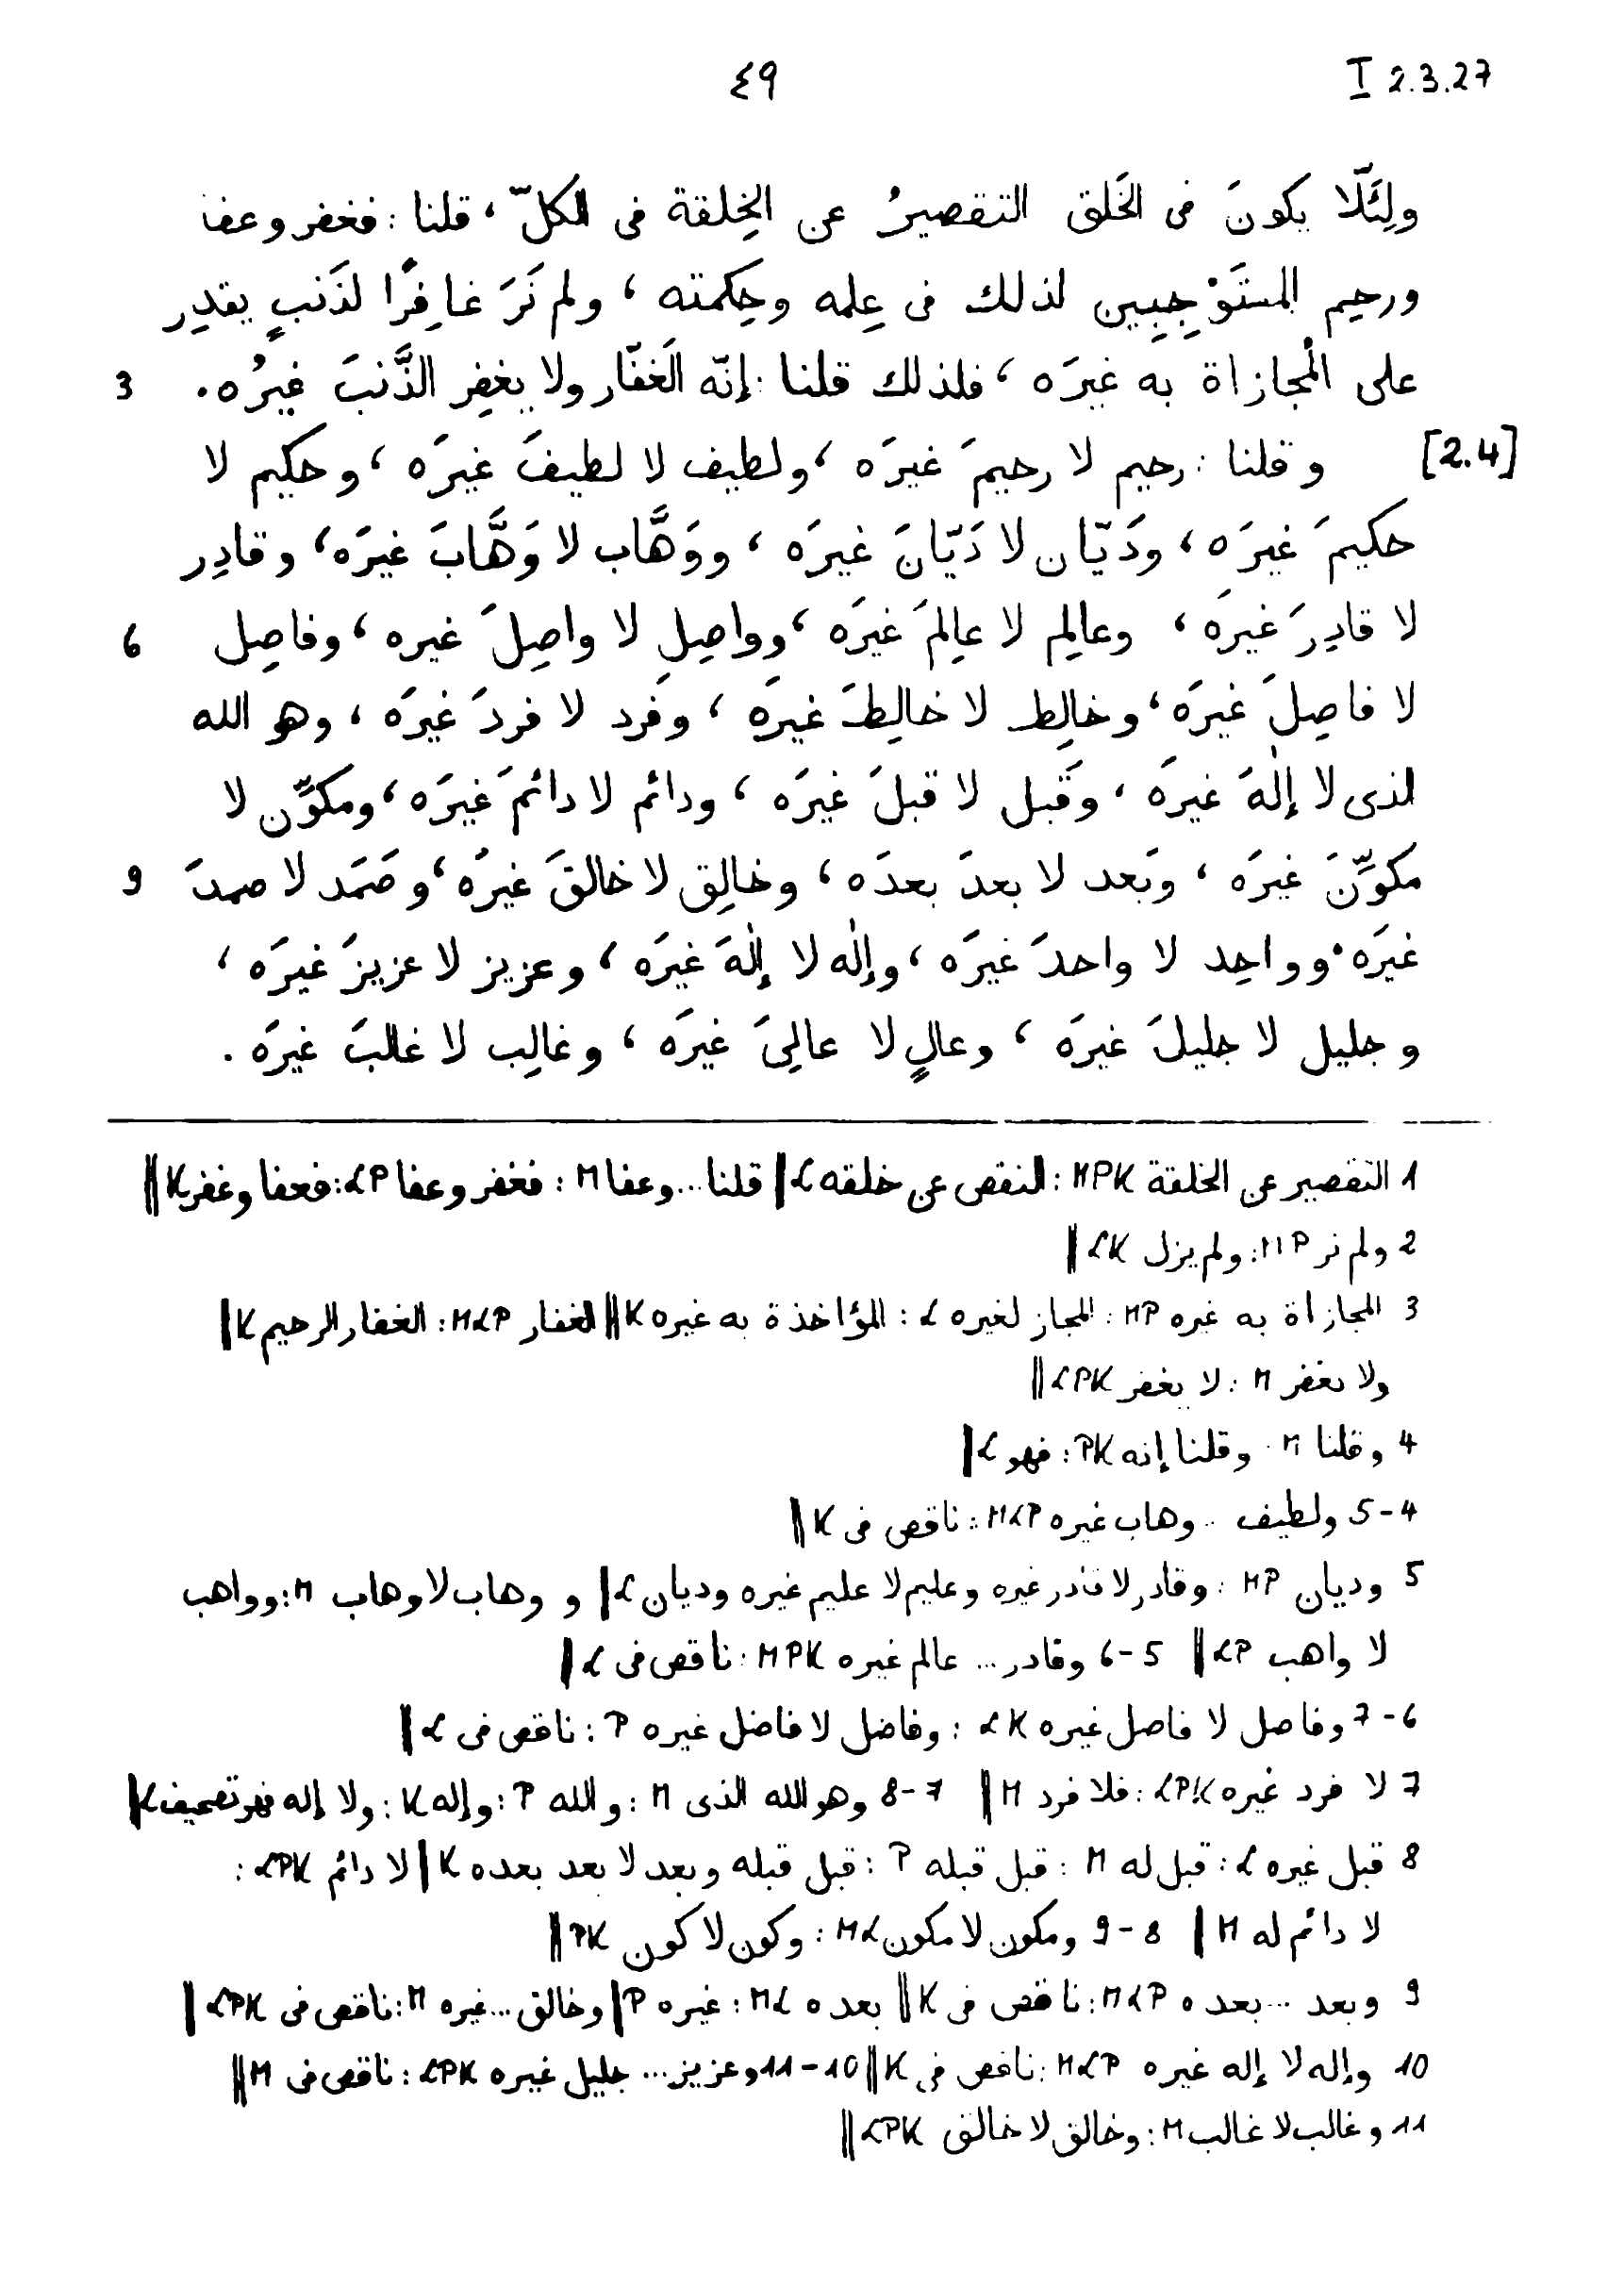 ٤٩ I 2.3.27
ولِئَلّا يكونَ فى الخَلق التقصيرُ عن الخِلقة فى الكلّ، قلنا: فغفر وعفا
ورحِيم المستَوْجِبِين لذلك فى عِلمه وحِكمته، ولم نَرَ غافِرًا لذَنبٍ يقدِر
على المُجازاة به غيرَه، فلذلك قلنا: إنّه الغَفّار ولا يغفِر الذَّنبَ غيرُه. 3
[2.4] وقلنا: رحيم لا رحيمَ غيرَه، ولطيف لا لطيفَ غيرَه، وحكيم لا
حكيمَ غيرَه، ودَيّان لا دَيّانَ غيرَه، ووَهَّاب لا وَهَّابَ غيرَه، وقادِر
لا قادِرَ غيرَه، وعالِم لا عالِمَ غيرَه، وواصِل لا واصِلَ غيره، وفاصِل 6
لا فاصِلَ غيرَه، وخالِط لا خالِطَ غيرَه، وفَرد لا فردَ غيرَه، وهو الله
الذى لا إلٰهَ غيرَه، وقَبل لا قبلَ غيرَه، ودائم لا دائمَ غيرَه، ومكوِّن لا
مكوِّنَ غيرَه، وبَعد لا بعدَ بعدَه، وخالِق لا خالقَ غيرَه، وصَمَد لا صمدَ 9
غيرَه، وواحِد لا واحدَ غيرَه، وإلٰه لا إلٰهَ غيرَه، وعزيز لا عزيزَ غيرَه،
وجليل لا جليلَ غيرَه، وعالٍ لا عالِىَ غيرَه، وغالِب لا غالبَ غيرَه.
1 التقصير عن الخلقة MPK: النقص عن خلقه L‖ قلنا...وعفا M: فغفر وعفا LP: فعفا وغفر K‖
2 ولم نر MP: ولم يزل LK‖
3 المجازاة به غيره MP: المجاز لغيره L: المؤاخذة به غيره K‖ الغفار MLP: الغفار الرحيم K‖
ولا يغفر M: لا يغفر LPK‖
4 وقلنا M: وقلنا إنه PK: فهو L‖
4-5 ولطيف...وهاب غيره MLP: ناقص فى K‖
5 وديان MP: وقادر لا قادر غيره وعليم لا عليم غيره وديان L‖ و وهاب لا وهاب M: وواهب
لا واهب LP‖ 5-6 وقادر...عالم غيره MPK: ناقص فى L‖
6-7 وفاصل لا فاصل غيره LK: وفاضل لا فاضل غيره P: ناقص فى L‖
7 لا فرد غيره LPK: فلا فرد M‖ 7-8 وهو الله الذى M: والله P: وإله K: ولا إله فهو تصحيف L‖
8 قبل غيره L: قبل له M: قبل قبله P: قبل قبله وبعد لا بعد بعده K‖ لا دائم LPK:
لا دائم له M‖ 8-9 ومكون لا مكون ML: وكون لا كون PK‖
9 وبعد...بعده MLP: ناقص فى K‖ بعده ML: غيره P‖ وخالق...غيره M: ناقص فى LPK‖
10 وإله لا إله غيره MLP: ناقص فى K‖ 10-11 وعزيز...جليل غيره LPK: ناقص فى M‖
11 وغالب لا غالب M: وخالق لا خالق LPK‖